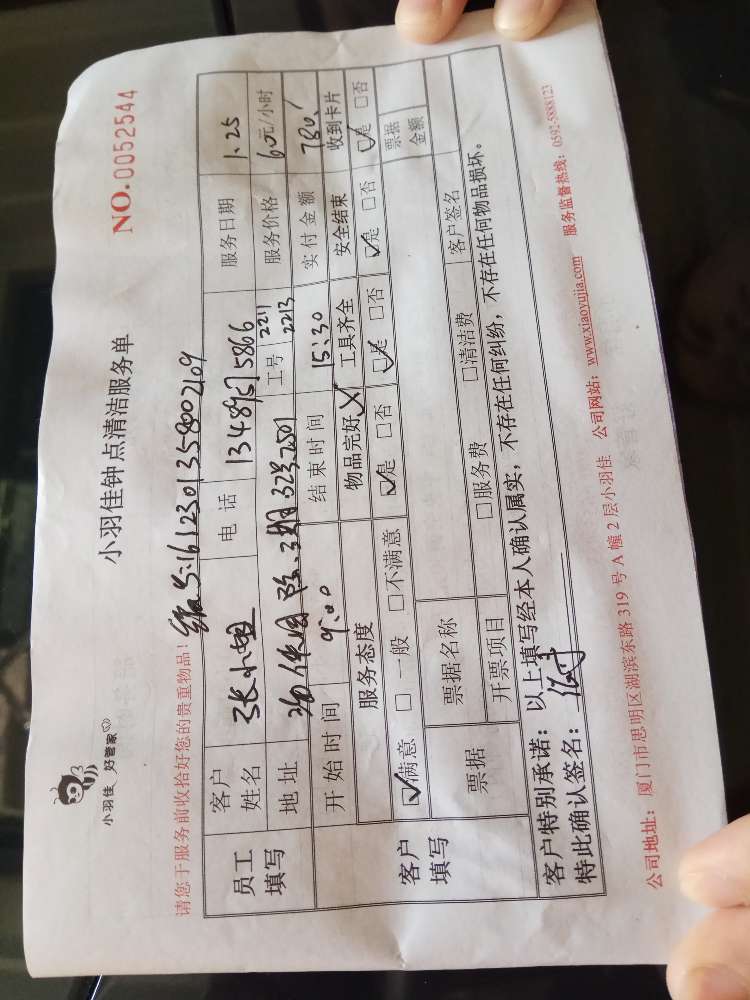 小羽佳 好管家
小羽佳钟点清洁服务单
NO.0052544
请您于服务前收拾好您的贵重物品！编号:1612301358002109
员工填写 客户姓名 张小姐 电话 服务日期 1.25
地址 工号 2211 2213 服务价格 60元/小时
开始时间 9:00 结束时间 15:30 实付金额 780
客户填写 服务态度 物品完好 工具齐全 安全结束 收到卡片
☑满意 □一般 □不满意 ☑是 □否 ☑是 □否 ☑是 □否 ☑是 □否
票据 票据名称 票据金额
开票项目 □服务费 □清洁费 客户签名
客户特别承诺：以上填写经本人确认属实，不存在任何纠纷，不存在任何物品损坏。
特此确认签名：
公司地址：厦门市思明区湖滨东路 319 号 A 幢 2 层小羽佳 公司网站：www.xiaoyujia.com 服务监督热线：0592-5888123